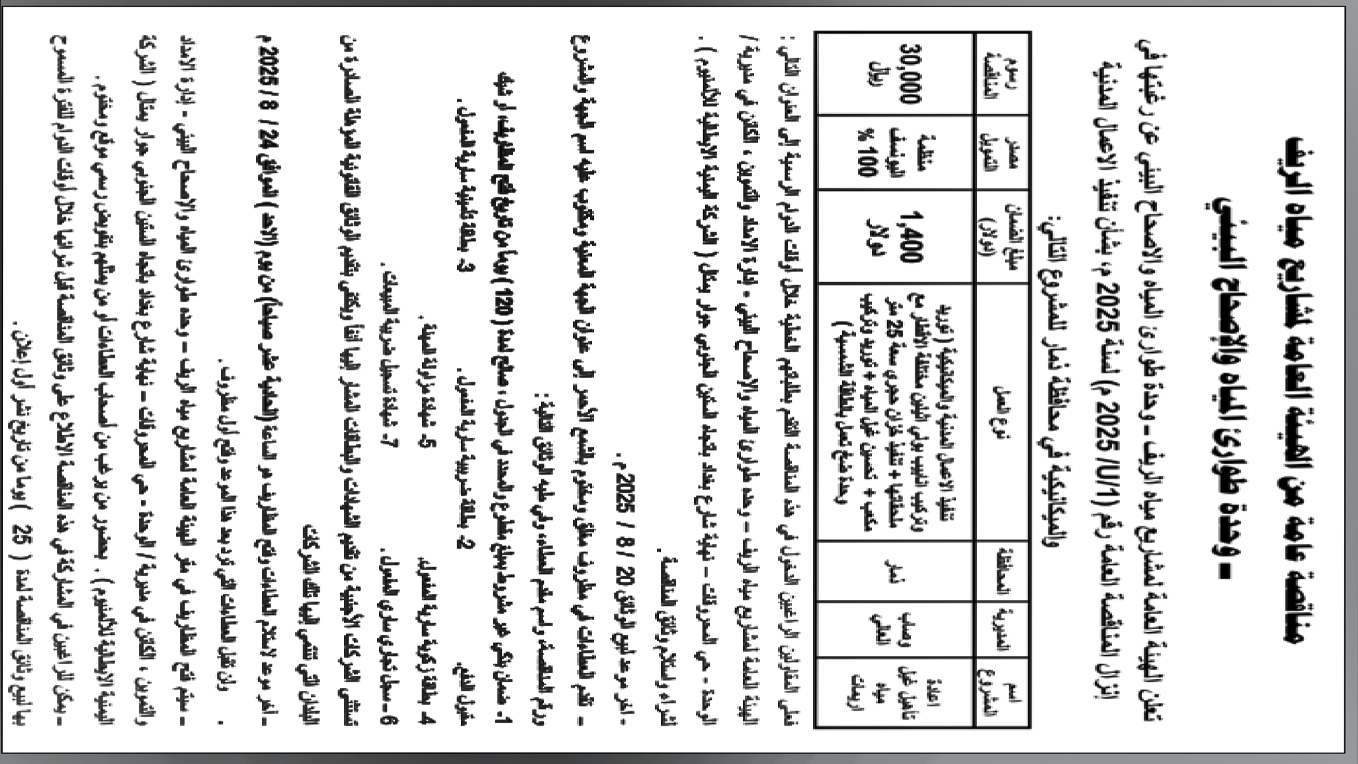 مناقصة عامة من الهيئة العامة لمشاريع مياه الريف
– وحدة طوارئ المياه والإصحاح البيئي
تعلن الهيئة العامة لمشاريع مياه الريف – وحدة طوارئ المياه والاصحاح البيئي عن رغبتها في
إنزال المناقصة العامة رقم (1/U/ 2025 م) لسنة 2025 م، بشأن تنفيذ الاعمال المدنية
والميكانيكية في محافظة ذمار للمشروع التالي:
اسم المشروع | المديرية | المحافظة | نوع العمل | مبلغ الضمان (دولار) | مصدر التمويل | رسوم المناقصة
اعادة تأهيل غيل مياه | وصاب العالي | ذمار | تنفيذ الاعمال المدنية والميكانيكية ( توريد وتركيب انابيب بولي اثيلين مختلفة الاقطار مع ملحقاتها + تنفيذ خزان حجري سعة 25 متر مكعب + تحسين غيل المياه + توريد وتركيب وحدة ضخ تعمل بالطاقة الشمسية ) | 1,400 دولار | منظمة اليونسف 100 % | 30,000 ريال
فعلى المقاولين الراغبين الدخول في هذه المناقصة التقدم بطلباتهم الخطية خلال أوقات الدوام الرسمية إلى العنوان التالي :
الهيئة العامة لمشاريع مياه الريف – وحدة طوارئ المياه والاصحاح البيئي - إدارة الامداد والتموين ، الكائن في مديرية /
الوحدة - حي المحروقات – نهاية شارع بغداد باتجاه الستين الجنوبي جوار بمثل ( الشركة اليمنية الايطالية للألمنيوم ) .
لشراء واستلام وثائق المناقصة .
- اخر موعد لبيع الوثائق 20 / 8 / 2025 م .
– تقدم العطاءات في مظروف مغلق ومختوم بالشمع الأحمر إلى عنوان الجهة المعنية ومكتوب عليه اسم الجهة والمشروع
ورقم المناقصة، واسم مقدم العطاء، وفي طيه الوثائق التالية :
1- ضمان بنكي غير مشروط بمبلغ مقطوع والمحدد في الجدول ، صالح لمدة ( 120 ) يوماً من تاريخ فتح المظاريف، او شيك
مقبول الدفع. 2- بطاقة ضريبية سارية المفعول. 3- بطاقة تأمينية سارية المفعول .
4- بطاقة زكوية سارية المفعول. 5- شهادة مزاولة المهنة .
6 – سجل تجاري ساري المفعول . 7- شهادة تسجيل ضريبة المبيعات .
تستثنى الشركات الأجنبية من تقديم الشهادات والبطاقات المشار اليها آنفاً ويكتفى بتقديم الوثائق القانونية المؤهلة الصادرة من
البلدان التي تنتمي اليها تلك الشركات
– آخر موعد لاستلام العطاءات وفتح المظاريف هو الساعة (الحادية عشر صباحاً) من يوم (الاحد ) الموافق 24 / 8 / 2025 م
. ولن تقبل العطاءات التي ترد بعد هذا الموعد وفتح أول مظروف .
– سيتم فتح المظاريف في مقر الهيئة العامة لمشاريع مياه الريف – وحدة طوارئ المياه والاصحاح البيئي - إدارة الامداد
والتموين ، الكائن في مديرية / الوحدة - حي المحروقات – نهاية شارع بغداد باتجاه الستين الجنوبي جوار بمثال ( الشركة
اليمنية الايطالية للألمنيوم ) . بحضور من يرغب من أصحاب العطاءات أو من يمثلهم بتفويض رسمي موقع ومختوم .
– يمكن للراغبين في المشاركة في هذه المناقصة الاطلاع على وثائق المناقصة قبل شرائها خلال أوقات الدوام للفترة المسموح
بها لبيع وثائق المناقصة لمدة ( 25 ) يوما من تاريخ نشر أول إعلان .